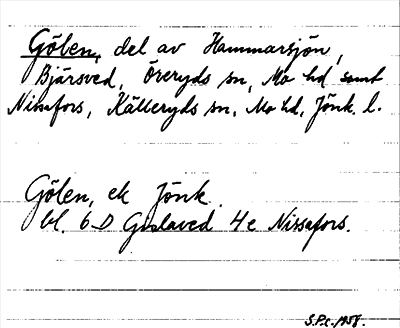 Gölen, del av Hammarsjön,
Bjärsved, Öreryds sn, Mo hd samt
Nissafors, Källeryds sn, Mo hd, Jönk. l.
Gölen, ek Jönk.
bl. 6 D Gislaved 4e Nissafors.
S.P.c. 1958.